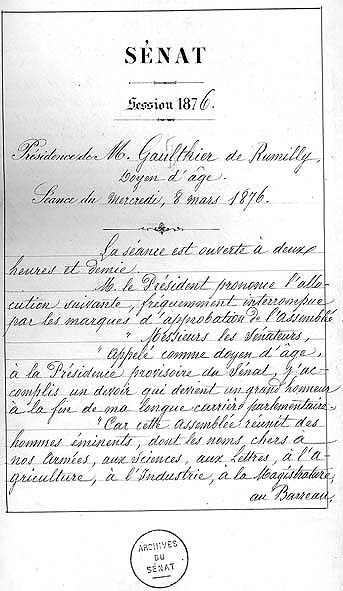 SÉNAT
Session 1876.
Présidence de M. Gaulthier de Rumilly,
Doyen d'âge.
Séance du Mercredi, 8 mars 1876.
La séance est ouverte à deux
heures et demie.
M. le Président prononce l'allo-
cution suivante, fréquemment interrompue
par les marques d'approbation de l'Assemblée
" Messieurs les Sénateurs,
" Appelé comme doyen d'âge,
à la Présidence provisoire du Sénat, j'ac-
complis un devoir qui devient un grand honneur
à la fin de ma longue carrière parlementaire.
" Car cette Assemblée réunit des
hommes éminents, dont les noms, chers à
nos Armées, aux Sciences, aux Lettres, à l'A-
griculture, à l'Industrie, à la Magistrature,
au Barreau,
ARCHIVES
DU
SÉNAT